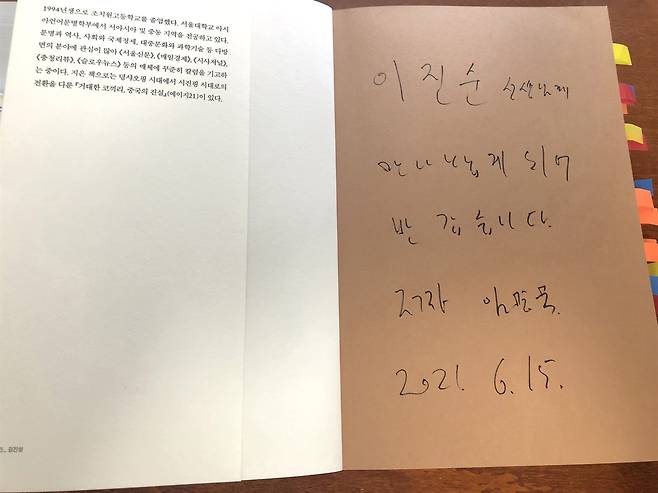 1994년생으로 조치원고등학교를 졸업했다. 서울대학교 아시
아언어문명학부에서 서아시아 및 중동 지역을 전공하고 있다.
문명과 역사, 사회와 국제정세, 대중문화와 과학기술 등 다방
면의 분야에 관심이 많아 《서울신문》, 《매일경제》, 《시사저널》,
《충청리뷰》, 《슬로우뉴스》 등의 매체에 꾸준히 칼럼을 기고하
는 중이다. 지은 책으로는 덩샤오핑 시대에서 시진핑 시대로의
전환을 다룬 『거대한 코끼리, 중국의 진실』(에이지21)이 있다.
김진성
이진순 선생님께
만나뵙게 되어
반갑습니다.
저자 임명묵.
2021. 6. 15.